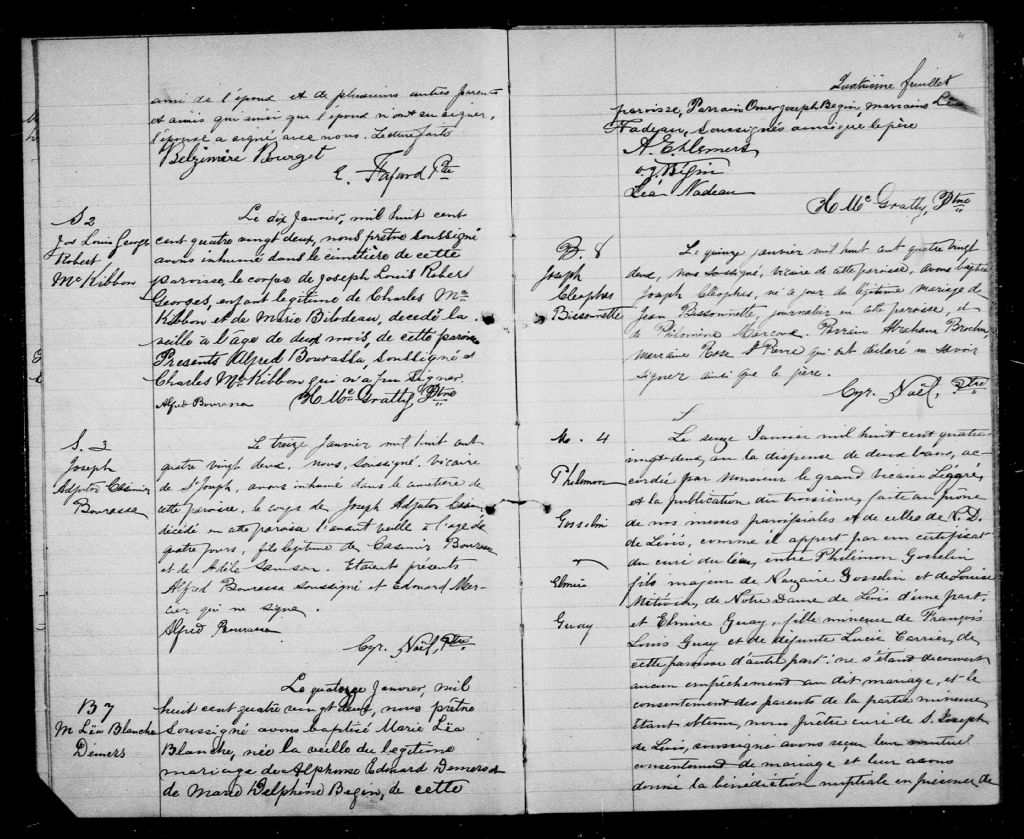 ami de l'époux et de plusieurs autres parents
et amis qui ainsi que l'époux n'ont su signer,
l'épouse a signé avec nous. Lecture faite
Belzimère Bourget
E. Fafard Ptre
S 2
Jos Louis George
Robert
McKibbon
Le dix Janvier, mil huit cent
cent quatre vingt deux, nous prêtre soussigné
avons inhumé dans le cimetière de cette
paroisse, le corps de Joseph Louis Robert
Georges, enfant legitime de Charles Mc
Kibbon et de Marie Bilodeau, decedé la
veille à l'âge de deux mois, de cette paroisse
Presents Alfred Bourassa, soussigné et
Charles McKibbon qui n'a pu signer.
Alfred Bourassa
H McGratty, Ptre
S. 3
Joseph
Adjutor Casimir
Bourassa
Le treize Janvier mil huit cent
quatre vingt deux, nous, soussigné, vicaire
de St Joseph, avons inhumé dans le cimetière de
cette paroisse, le corps de Joseph Adjutor Casimir
décédé en cette paroisse l'avant veille à l'age de
quatre jours, fils legitime de Casimir Bourassa
et de Adèle Samson. Etaient présents
Alfred Bourassa soussigné et Edouard Mer-
cier qui ne signe.
Alfred Bourassa
Cyr. Noël, Ptre
B 7
M Léa Blanche
Demers
Le quatorze Janvier, mil
huit cent quatre vingt deux, nous prêtre
soussigné avons baptisé Marie Léa
Blanche, née la veille du legitime
mariage de Alphonse Edouard Demers et
de Marie Delphine Begin, de cette
4
Quatrième feuillet
paroisse, Parrain Omer Joseph Begin, marraine Léa
Nadeau, soussignés ainsi que le père
A. E. Demers
O. J. Bégin
Léa Nadeau
H McGratty, Ptre
B. 8
Joseph
Cleophas
Bissonnette
Le quinze janvier mil huit cent quatre vingt
deux, nous soussigné, vicaire de cette paroisse, avons baptisé
Joseph Cleophas, né ce jour du légitime mariage de
Jean Bissonnette, journalier en cette paroisse, et
de Philomène Marcoux. Parrain Abraham Brochu,
marraine Rose St Pierre qui ont déclaré ne savoir
signer ainsi que le père.
Cyr. Noël, Ptre
M. 4
Philemon
Gosselin
Elmire
Guay
Le seize Janvier mil huit cent quatre-
vingt-deux, vu la dispense de deux bans, ac-
cordée par Monsieur le grand vicaire Légaré,
et la publication du troisième, faite au prône
de nos messes paroissiales et de celles de N. D.
de Lévis, comme il appert par un certificat
du curé du lieu, entre Philémon Gosselin
fils majeur de Nazaire Gosselin et de Louise
Métivier, de Notre Dame de Lévis d'une part,
et Elmire Guay, fille mineure de François
Louis Guay et de défunte Lucie Carrier, de
cette paroisse d'autre part: ne s'étant découvert
aucun empêchement au dit mariage, et le
consentement des parents de la partie mineure
étant obtenu, nous prêtre curé de S. Joseph
de Lévis, soussigné avons reçu leur mutuel
consentement de mariage et leur avons
donné la bénédiction nuptiale en présence de